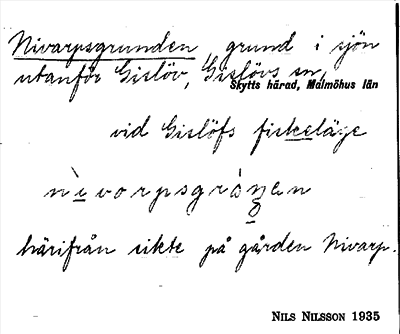 Nivarpsgrunden grund i sjön
utanför Gislöv, Gislövs sn,
Skytts härad, Malmöhus län
vid Gislöfs fiskeläge
härifrån sikte på gården Nivarp.
NILS NILSSON 1935